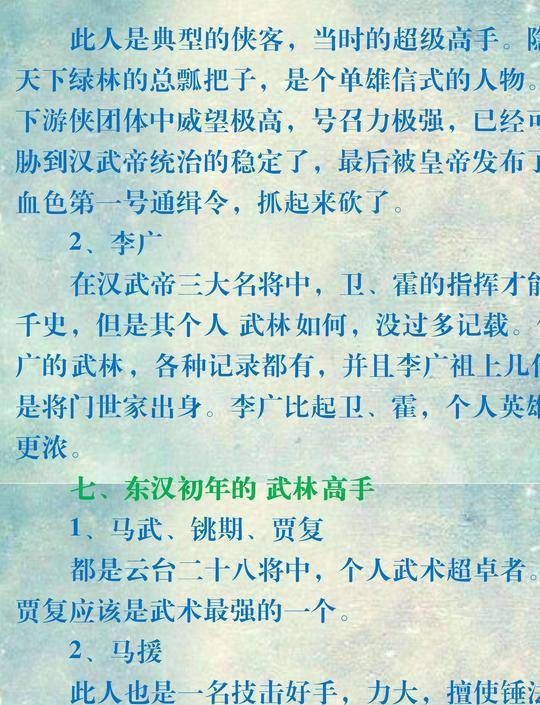 此人是典型的侠客，当时的超级高手。隐
天下绿林的总瓢把子，是个单雄信式的人物。
下游侠团体中威望极高，号召力极强，已经可
胁到汉武帝统治的稳定了，最后被皇帝发布了
血色第一号通缉令，抓起来砍了。
2、李广
在汉武帝三大名将中，卫、霍的指挥才能
千史，但是其个人 武林如何，没过多记载。
广的武林，各种记录都有，并且李广祖上几代
是将门世家出身。李广比起卫、霍，个人英雄
更浓。
七、东汉初年的 武林高手
1、马武、铫期、贾复
都是云台二十八将中，个人武术超卓者。
贾复应该是武术最强的一个。
2、马援
此人也是一名技击好手，力大，擅使锤法